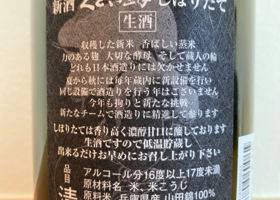 新酒 しぼりたて
生酒
収穫した新米 香ばしい蒸米
力のある麹 大切な酵母 そして蔵人の輪
どれも日本酒造りには欠かせません
夏から秋には毎年蔵内に新設備を行い
同じ設備で酒造りを行う年はございません
今年も拘りと新たな挑戦
新たなチームで酒造りに精進して参ります
しぼりたては香り高く濃醇甘口に醸しております
生酒ですので低温貯蔵し
出来るだけお早めにお召し上がり下さい
品目
アルコール分16度以上17度未満
原材料名 米、米こうじ
原料米 兵庫県産 山田錦100%